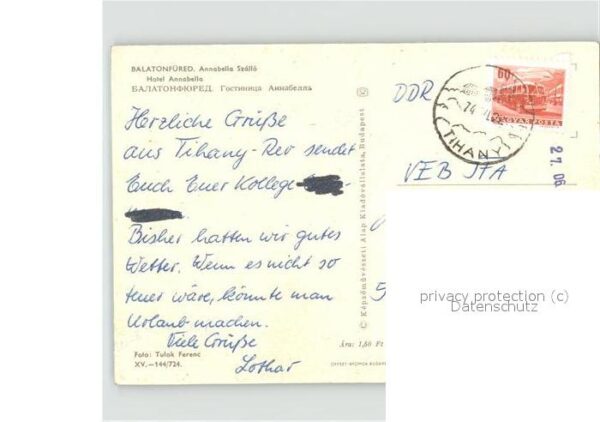 BALATONFÜRED. Annabella Szálló
Hotel Annabella
БАЛАТОНФЮРЕД. Гостиница Аннабелла
Herzliche Grüße
aus Tihany-Rev sendet
Euch Euer Kollege
Bisher hatten wir gutes
Wetter. Wenn es nicht so
teuer wäre, könnte man
Urlaub machen.
Viele Grüße
Lothar
Foto: Tulok Ferenc
XV.—144/724.
Ára: 1,60 Ft
© Képzőművészeti Alap Kiadóvállalata, Budapest
DDR
VEB IFA
60
MAGYAR POSTA
74
TIHANY
27. 06
5
privacy protection (c)
Datenschutz